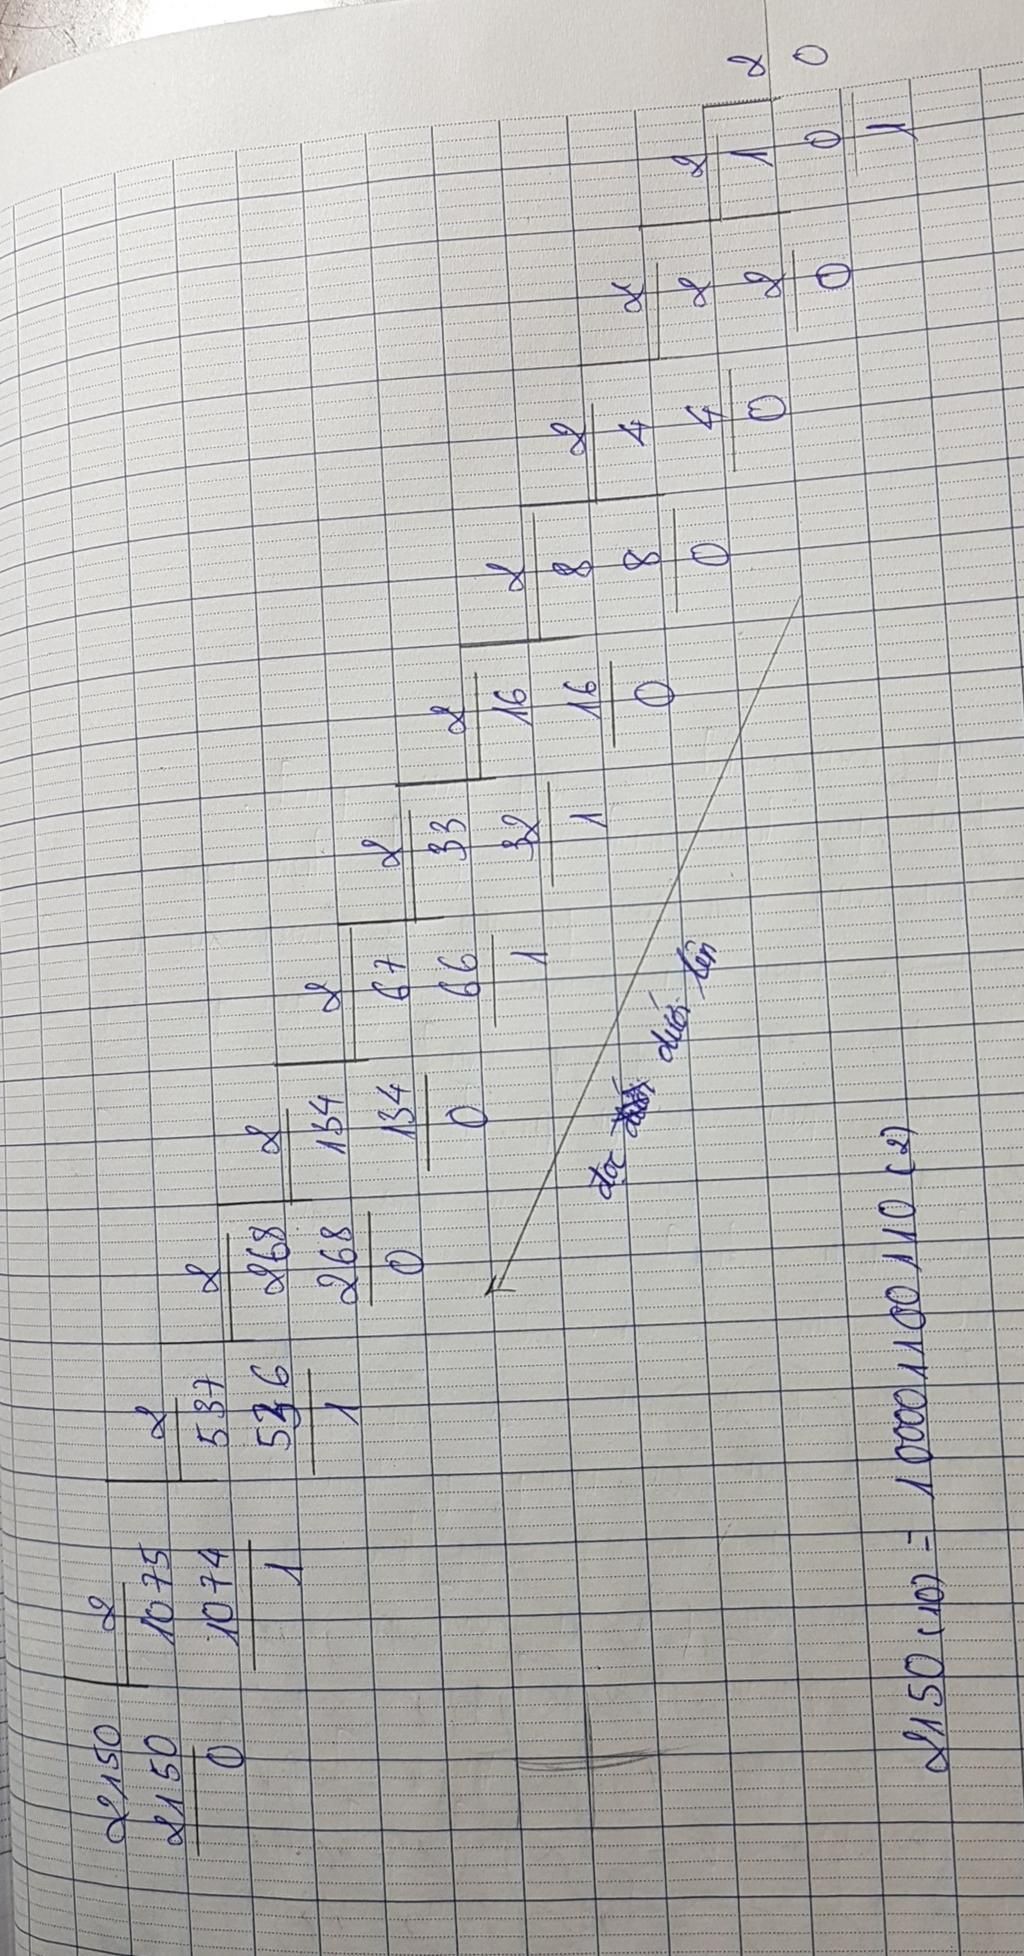 2150 2
2150 1075 2
0 1074 537 2
1 536 268 2
1 268 134 2
0 134 67 2
0 66 33 2
1 32 16 2
1 16 8 2
0 8 4 2
0 4 2 2
0 2 1 2
0 0 0
1
đọc dưới lên
2150 (10) = 100001100110 (2)